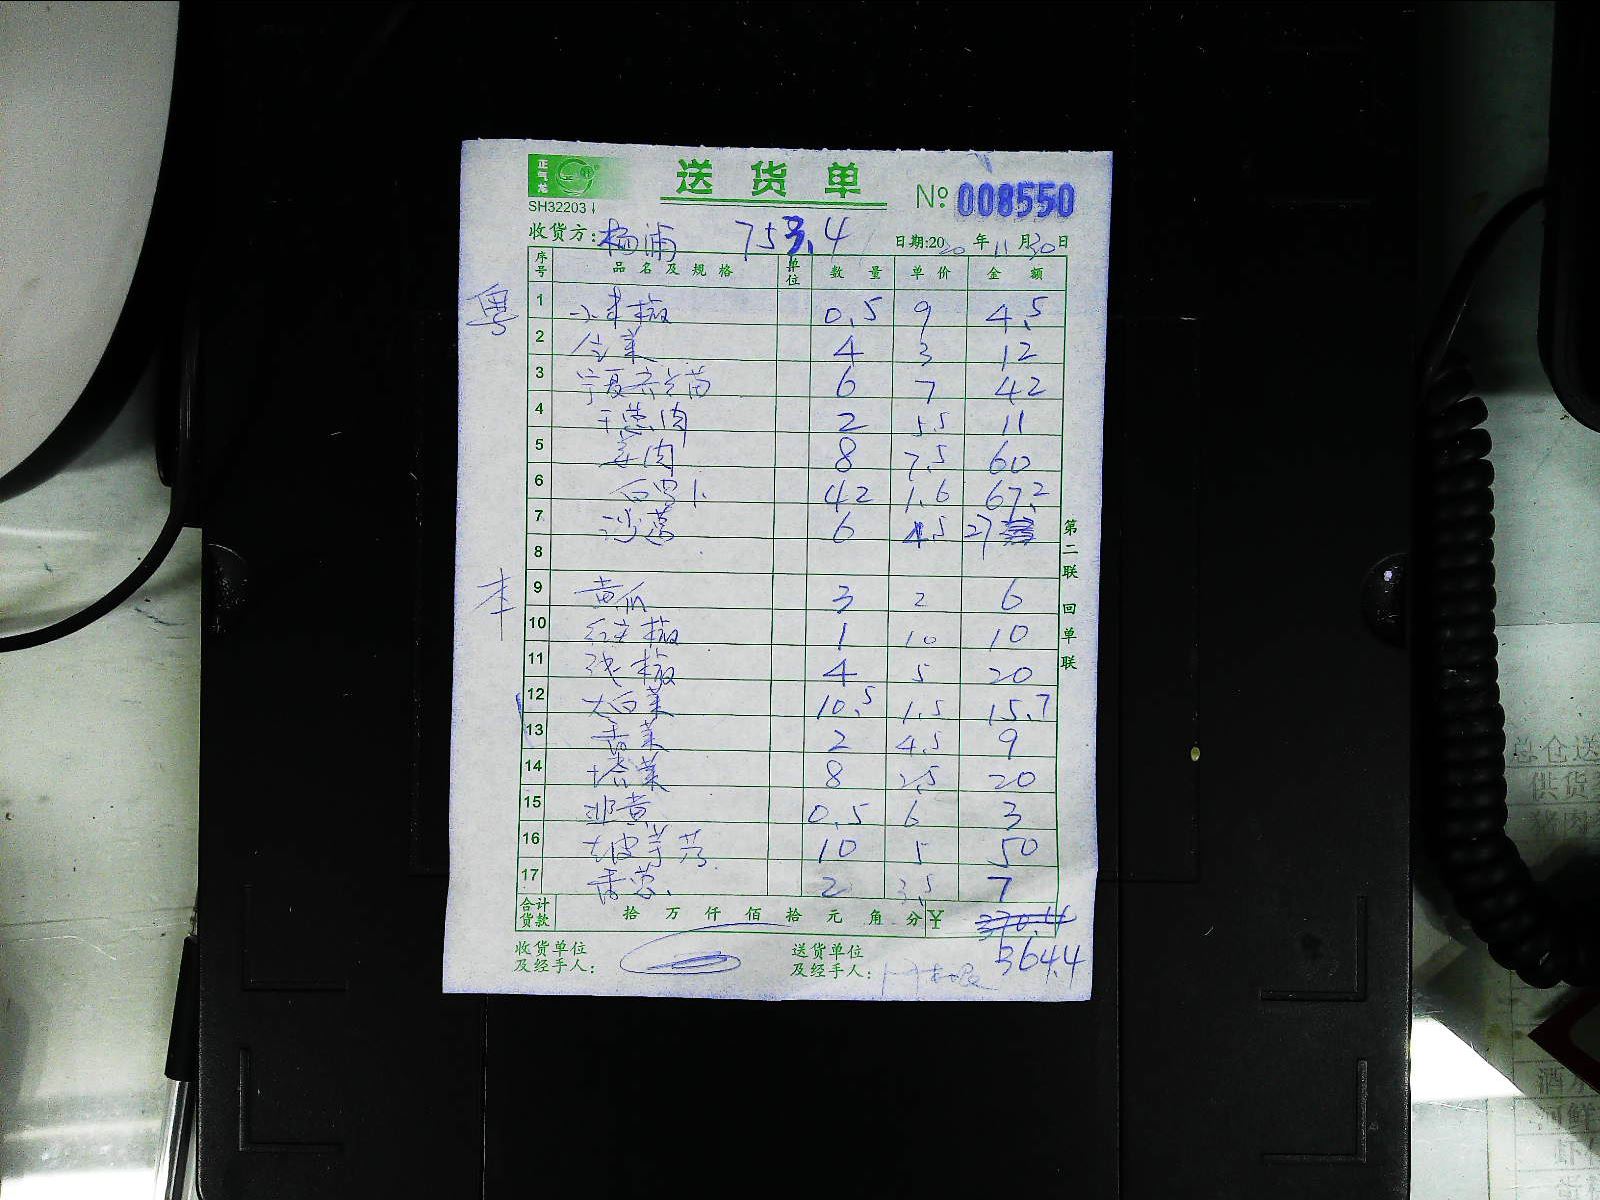 正气龙
送货单
SH32203
№ 008550
收货方: 杨浦 753.4 日期:2020年11月30日
序号 品名及规格 单位 数量 单价 金额
粤
1 小米椒 0.5 9 4.5
2 4 3 12
3 宁夏 苗 6 7 42
4 干葱肉 2 5.5 11
5 姜肉 8 7.5 60
6 白罗卜 42 1.6 67.2
7 沙葱 6 4.5 27
8
本
9 黄瓜 3 2 6
10 红尖椒 1 10 10
11 椒 4 5 20
12 大白菜 10.5 1.5 15.7
13 香菜 2 4.5 9
14 塔菜 8 2.5 20
15 韭黄 0.5 6 3
16 芋艿 10 5 50
17 香葱 2 3.5 7
合计货款 拾万仟佰拾元角分 ¥ 370.4
364.4
收货单位及经手人:
送货单位及经手人:
第二联 回单联
总仓送
供货
猪肉
酒水
河鲜